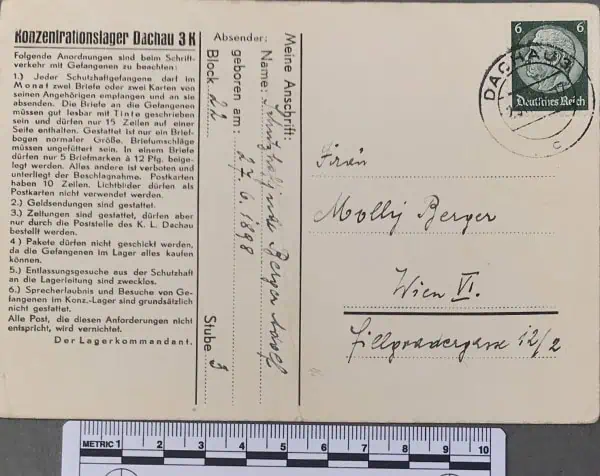 Konzentrationslager Dachau 3 K
Folgende Anordnungen sind beim Schrift-
verkehr mit Gefangenen zu beachten:
1.) Jeder Schutzhaftgefangene darf im
Monat zwei Briefe oder zwei Karten von
seinen Angehörigen empfangen und an sie
absenden. Die Briefe an die Gefangenen
müssen gut lesbar mit Tinte geschrieben
sein und dürfen nur 15 Zeilen auf einer
Seite enthalten. Gestattet ist nur ein Brief-
bogen normaler Größe. Briefumschläge
müssen ungefüttert sein. In einem Briefe
dürfen nur 5 Briefmarken à 12 Pfg. beige-
legt werden. Alles andere ist verboten und
unterliegt der Beschlagnahme. Postkarten
haben 10 Zeilen. Lichtbilder dürfen als
Postkarten nicht verwendet werden.
2.) Geldsendungen sind gestattet.
3.) Zeitungen sind gestattet, dürfen aber
nur durch die Poststelle des K. L. Dachau
bestellt werden.
4.) Pakete dürfen nicht geschickt werden,
da die Gefangenen im Lager alles kaufen
können.
5.) Entlassungsgesuche aus der Schutzhaft
an die Lagerleitung sind zwecklos.
6.) Sprecherlaubnis und Besuche von Ge-
fangenen im Konz.-Lager sind grundsätzlich
nicht gestattet.
Alle Post, die diesen Anforderungen nicht
entspricht, wird vernichtet.
Der Lagerkommandant.
Absender:
Meine Anschrift:
Name: Schutzhäftling Berger Adolf
geboren am: 27.6.1898
Block 22 Stube 3
6 6
Deutsches Reich
DACHAU 3
c
Frau
Molly Berger
Wien VI.
Fillgradergasse 12/2
METRIC 1 2 3 4 5 6 7 8 9 10